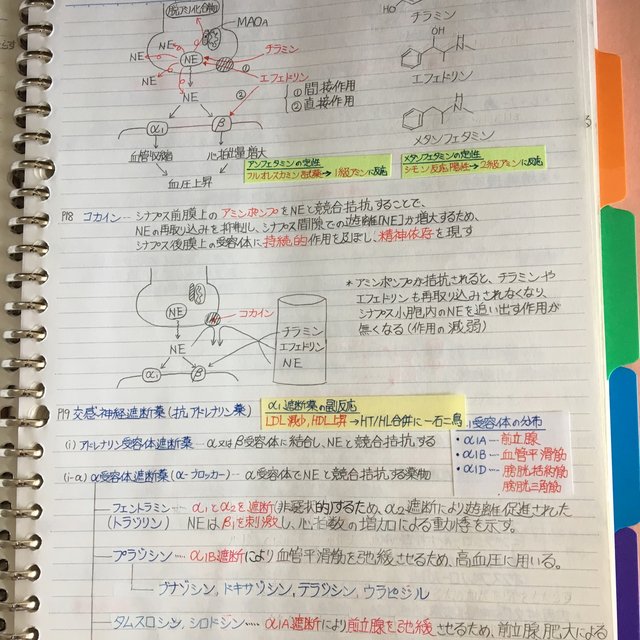 脱アミノ化合物
MAOA
チラミン
NE
NE
NE
NE
エフェドリン
NE
① 間接作用
② 直接作用
①
②
α1
β
血管収縮
心拍出量増大
血圧上昇
HO
チラミン
OH
エフェドリン
メタンフェタミン
アンフェタミンの定性
フルオレスカミン試薬→1級アミンに反応
メタンフェタミンの定性
シモン反応陽性→2級アミンに反応
P18 コカイン… シナプス前膜上のアミンポンプをNEと競合拮抗することで、
NEの再取り込みを抑制し、シナプス間隙での遊離[NE]が増大するため、
シナプス後膜上の受容体に持続的作用を及ぼし、精神依存を現す
NE
コカイン
NE
α1
β
チラミン
エフェドリン
NE
* アミンポンプが拮抗されると、チラミンや
エフェドリンも再取り込みされなくなり、
シナプス小胞内のNEを追い出す作用が
無くなる(作用の減弱)
P19 交感神経遮断薬(抗アドレナリン薬)
α1遮断薬の副反応
LDL減少、HDL上昇→HT/HL合併に一石二鳥
受容体の分布
・α1A―前立腺
・α1B―血管平滑筋
・α1D―膀胱括約筋
膀胱三角筋
(i) アドレナリン受容体遮断薬…α又はβ受容体に結合し、NEと競合拮抗する
(i-a) α受容体遮断薬(α-ブロッカー)…α受容体でNEと競合拮抗する薬物
フェントラミン…α1とα2を遮断(非選択的)するため、α2遮断により遊離促進された
(トラゾリン) NEはβ1を刺激し、心拍数の増加による動悸を示す。
プラゾシン…α1B遮断により血管平滑筋を弛緩させるため、高血圧に用いる。
ブナゾシン、ドキサゾシン、テラゾシン、ウラピジル
タムスロシン、シロドシン…α1A遮断により前立腺を弛緩させるため、前立腺肥大による